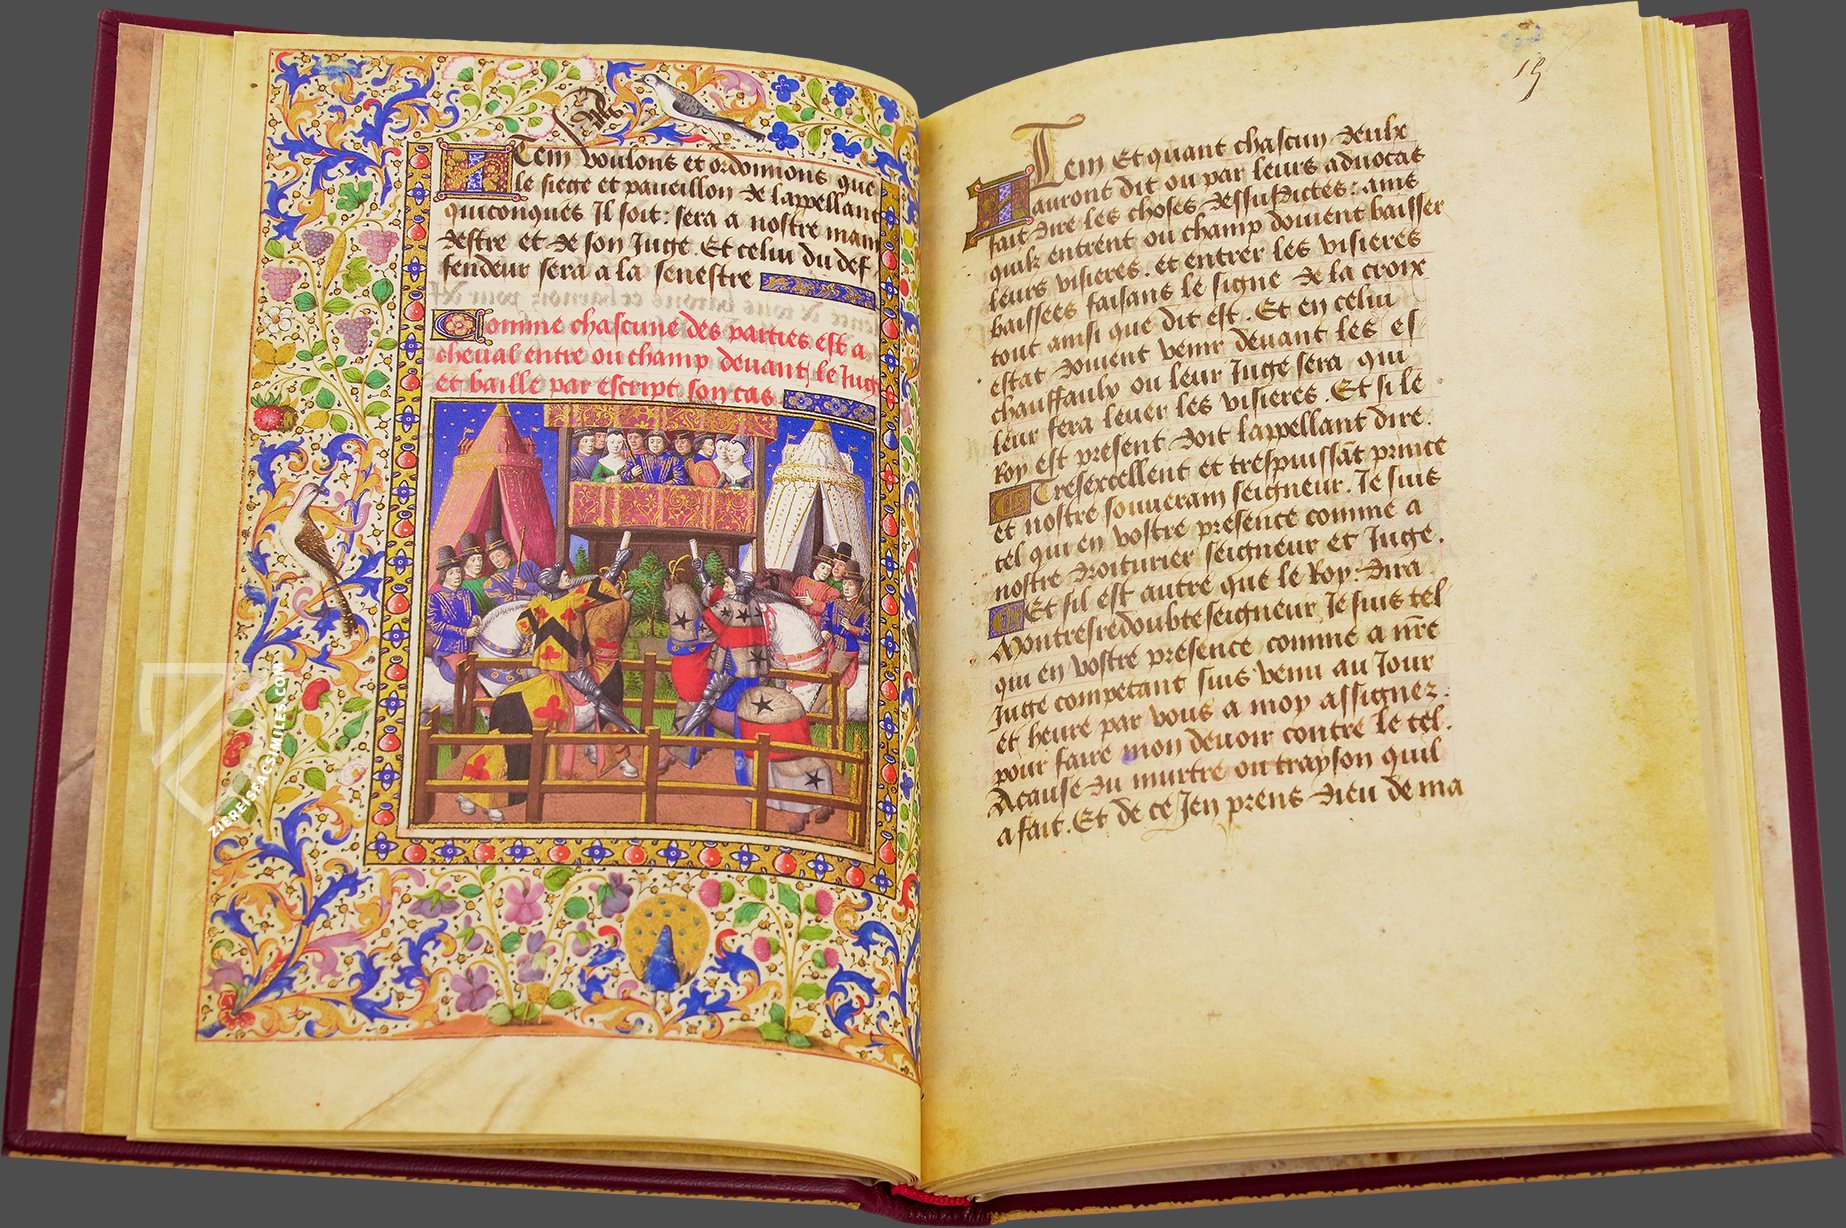 Item voulons et ordonnons que
le siege et paveillon de lappellant
quiconques Il soit: sera a nostre main
destre et de son Juge. Et celui du def
fendeur sera a la senestre
Comme chascune des parties est a
cheval entre ou champ devant le Juge
et baille par escript son cas
19
Item Et quant chascun deulx
auront dit ou par leurs advocas
fait dire les choses dessusdictes: ains
quilz entrent ou champ doivent baisser
leurs visieres. et entrer les visieres
baissees faisans le signe de la croix
tout ainsi que dit est. Et en celui
estat doivent venir devant les es
chauffaulx ou leur Juge sera qui
leur fera lever les visieres. Et si le
Roy est present doit lappellant dire.
Tresexcellent et trespuissãt prince
et nostre souverain seigneur. Je suis
tel qui en vostre presence comme a
nostre droiturier seigneur et Juge.
Et sil est autre que le Roy: dira
Montresredoubte seigneur Je suis tel
qui en vostre presence comme a nr̃e
Juge competant suis venu au Jour
et heure par vous a moy assignez.
pour faire mon devoir contre le tel.
Acause du murtre ou trayson quil
a fait. Et de ce Jen prens dieu de ma
ZIEREIGFACSIMILES.COM